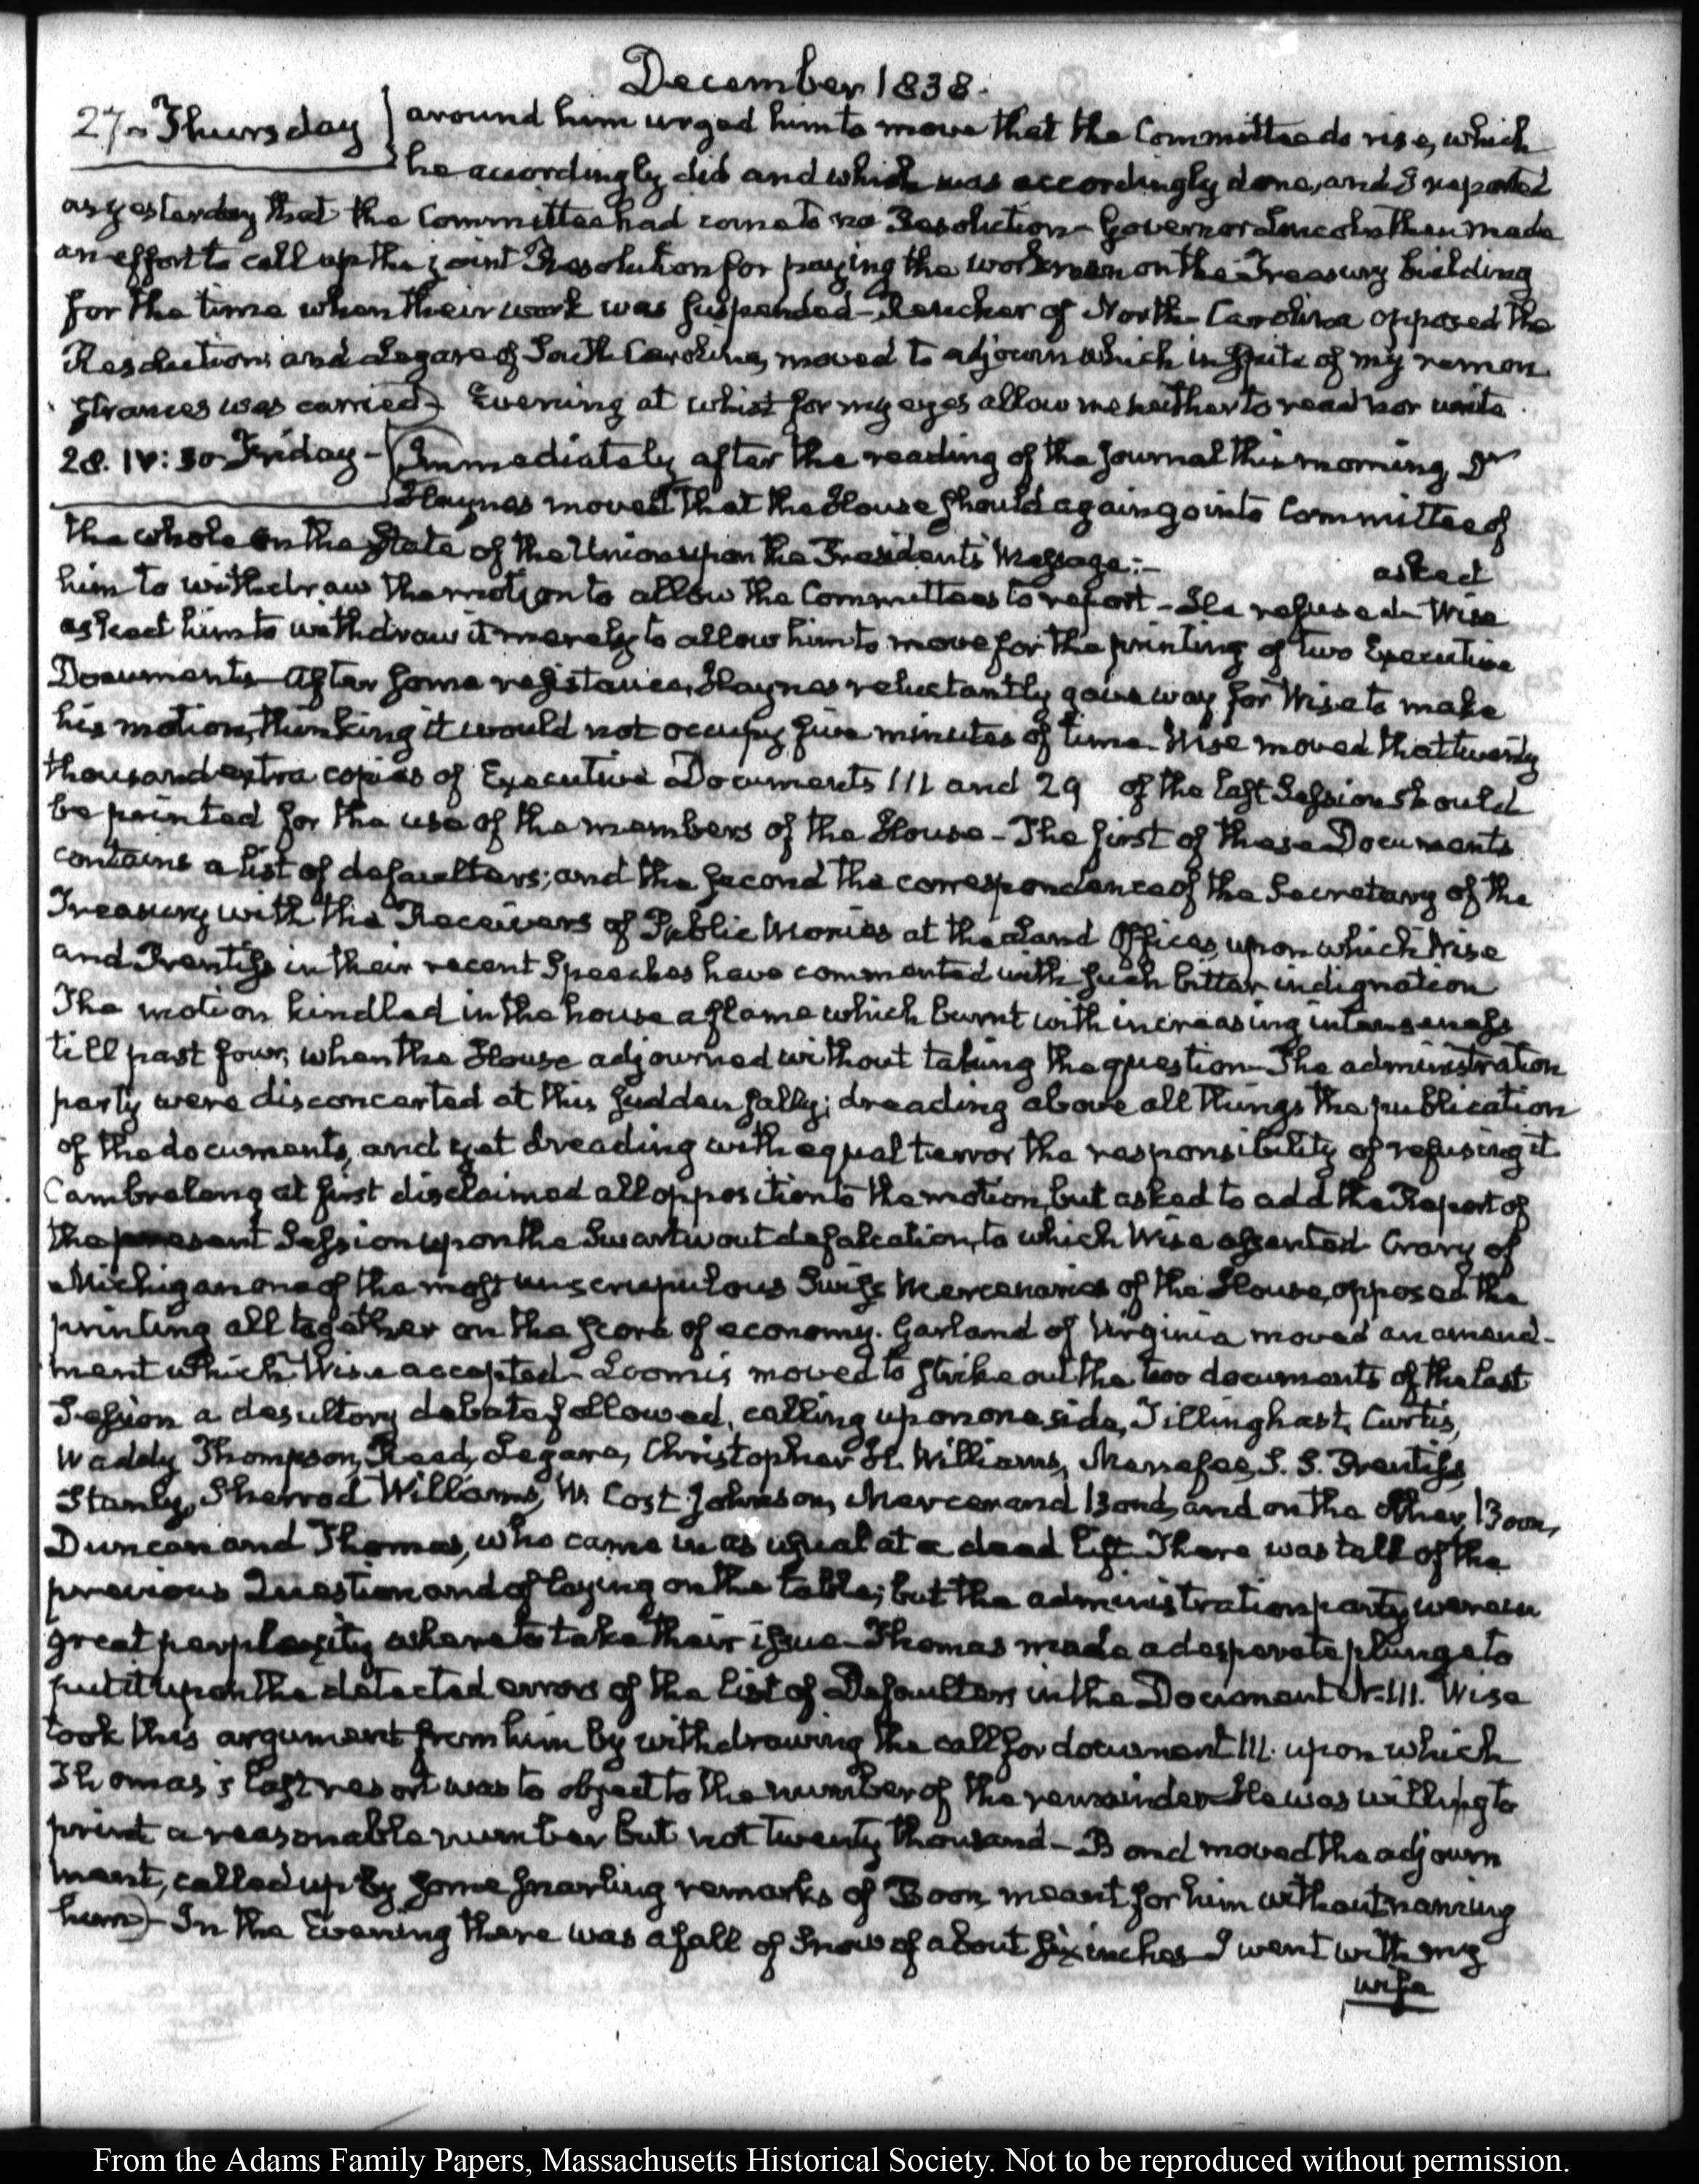 December 1838.
27. Thursday } around him urged him to move that the Committee do rise, which
he accordingly did and which was accordingly done, and I reported
as yesterday that the Committee had come to no Resolution - Governor Lincoln then made
an effort to call up the joint Resolution for paying the workmen on the Treasury building
for the time when their work was suspended - Rencher of North-Carolina opposed the
Resolution; and Legare of South Carolina, moved to adjourn which in spite of my remon
strances was carried - Evening at whist for my eyes allow me neither to read nor write
28. IV:30 Friday - Immediately after the reading of the Journal this morning,
Haynes moved that the House should again go into Committee of
the whole on the State of the Union upon the Presidents Message:- asked
him to withdraw the motion to allow the Committees to report - He refused - Wise
asked him to withdraw it merely to allow him to move for the printing of two Executive
Documents - After some resistance, Haynes reluctantly gave way for Wise to make
his motion, thinking it would not occupy five minutes of time - Wise moved that twenty
thousand extra copies of Executive Documents 111 and 29 of the last Session should
be printed for the use of the members of the House - The first of these Documents
contains a list of defaulters; and the second the correspondence of the Secretary of the
Treasury with the Receivers of Public Monies at the Land Offices, upon which Wise
and Prentiss in their recent Speeches have commented with such bitter indignation
The motion kindled in the house a flame which burnt with increasing intenseness
till past four, when the House adjourned without taking the question - The administration
party were disconcerted at this sudden sally; dreading above all things the publication
of the documents, and yet dreading with equal terror the responsibility of refusing it
Cambreleng at first disclaimed all opposition to the motion, but asked to add the Report of
the present Session upon the Swartwout defalcation, to which Wise assented - Crary of
Michigan one of the most unscrupulous Swiss Mercenaries of the House, opposed the
printing all together on the score of economy. Garland of Virginia moved an amend-
ment which Wise accepted - Loomis moved to strike out the two documents of the last
Session a desultory debate followed, calling up on one side, Tillinghast, Curtis,
Waddy Thompson, Reed, Legare, Christopher H. Williams, Menefee, S. S. Prentiss
Stanly, Sherrod Williams, W. Cost Johnson, Mercer and Bond, and on the other, Boon,
Duncan and Thomas, who came in as usual at a dead lift - There was talk of the
previous Question and of laying on the table; but the administration party were in
great perplexity where to take their issue - Thomas made a desperate plunge to
put it upon the detected errors of the list of Defaulters in the Document N. 111. Wise
took this argument from him by withdrawing the call for document 111. upon which
Thomas's last resort was to object to the number of the remainder - He was willing to
print a reasonable number but not twenty thousand - Bond moved the adjourn
ment, called up by some snarling remarks of Boon, meant for him without naming
him) - In the Evening there was a fall of snow of about six inches I went with my
wife
From the Adams Family Papers, Massachusetts Historical Society. Not to be reproduced without permission.